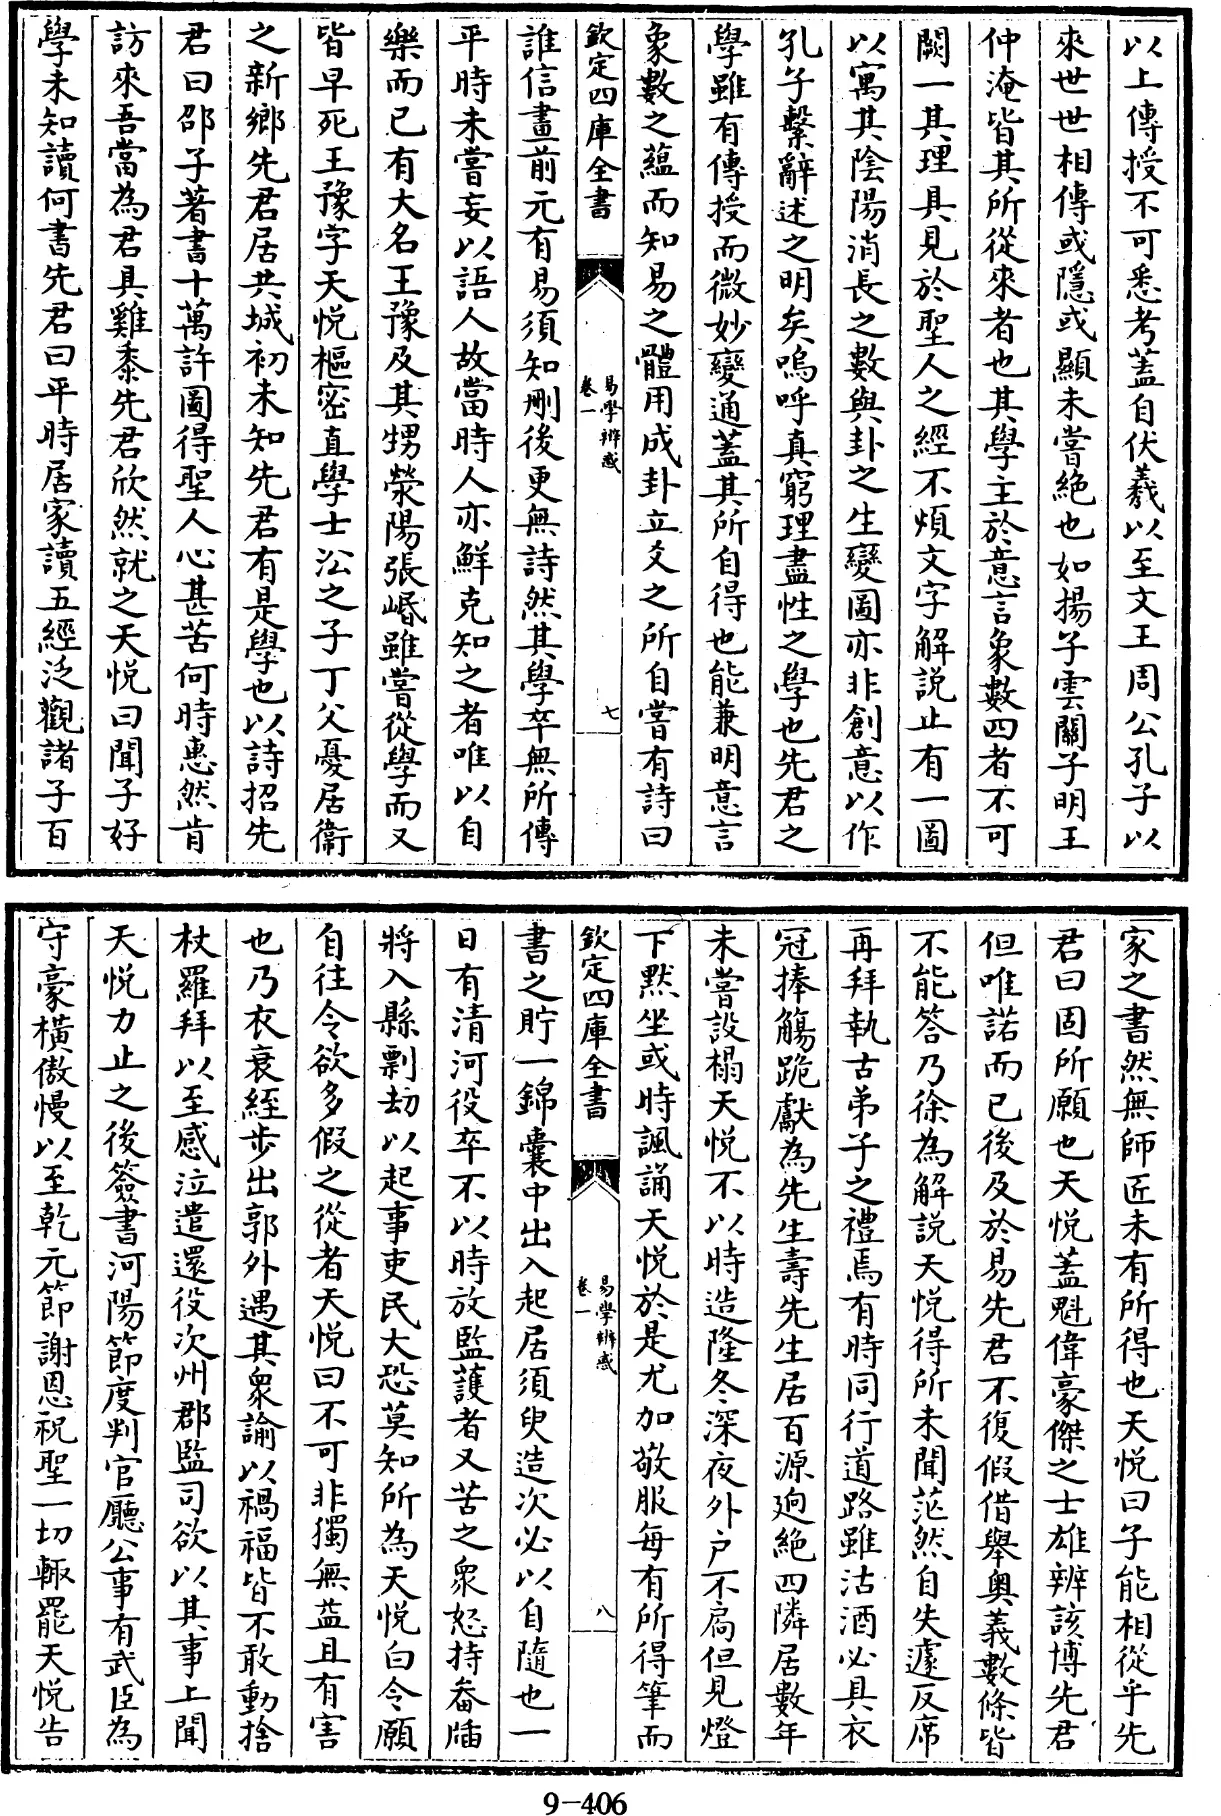 以上傳授不可悉考蓋自伏羲以至文王周公孔子以
來世世相傳或隱或顯未嘗絶也如揚子雲關子明王
仲淹皆其所從來者也其學主於意言象數四者不可
闕一其理具見於聖人之經不煩文字解説止有一圖
以寓其陰陽消長之數與卦之生變圖亦非創意以作
孔子繫辭述之明矣嗚呼真窮理盡性之學也先君之
學雖有傳授而微妙變通蓋其所自得也能兼明意言
象數之蘊而知易之體用成卦立爻之所自嘗有詩曰
欽定四庫全書
易學辨惑
卷一
七
誰信畫前元有易須知刪後更無詩然其學卒無所傳
平時未嘗妄以語人故當時人亦鮮克知之者唯以自
樂而已有大名王豫及其甥滎陽張㟭雖嘗從學而又
皆早死王豫字天悦樞密直學士沿之子丁父憂居衞
之新鄉先君居共城初未知先君有是學也以詩招先
君曰邵子著書十萬許圖得聖人心甚苦何時惠然肯
訪來吾當為君具雞黍先君欣然就之天悦曰聞子好
學未知讀何書先君曰平時居家讀五經泛觀諸子百
家之書然無師匠未有所得也天悦曰子能相從乎先
君曰固所願也天悦蓋魁偉豪傑之士雄辨該博先君
但唯諾而已後及於易先君不復假借舉奥義數條皆
不能答乃徐為解説天悦得所未聞茫然自失遽反席
再拜執古弟子之禮焉有時同行道路雖沽酒必具衣
冠捧觴跪獻為先生壽先生居百源廹絶四隣居數年
未嘗設榻天悦不以時造隆冬深夜外户不扃但見燈
下黙坐或時諷誦天悦於是尤加敬服每有所得筆而
欽定四庫全書
易學辨惑
卷一
八
書之貯一錦囊中出入起居須臾造次必以自隨也一
日有清河役卒不以時放監䕶者又苦之衆怒持畚鍤
將入縣剽劫以起事吏民大恐莫知所為天悦白令願
自往令欲多假之從者天悦曰不可非獨無益且有害
也乃衣衰絰步出郭外遇其衆諭以禍福皆不敢動捨
杖羅拜以至感泣遣還役次州郡監司欲以其事上聞
天悦力止之後簽書河陽節度判官廳公事有武臣為
守豪橫傲慢以至乾元節謝恩祝聖一切輙罷天悦告
9-406